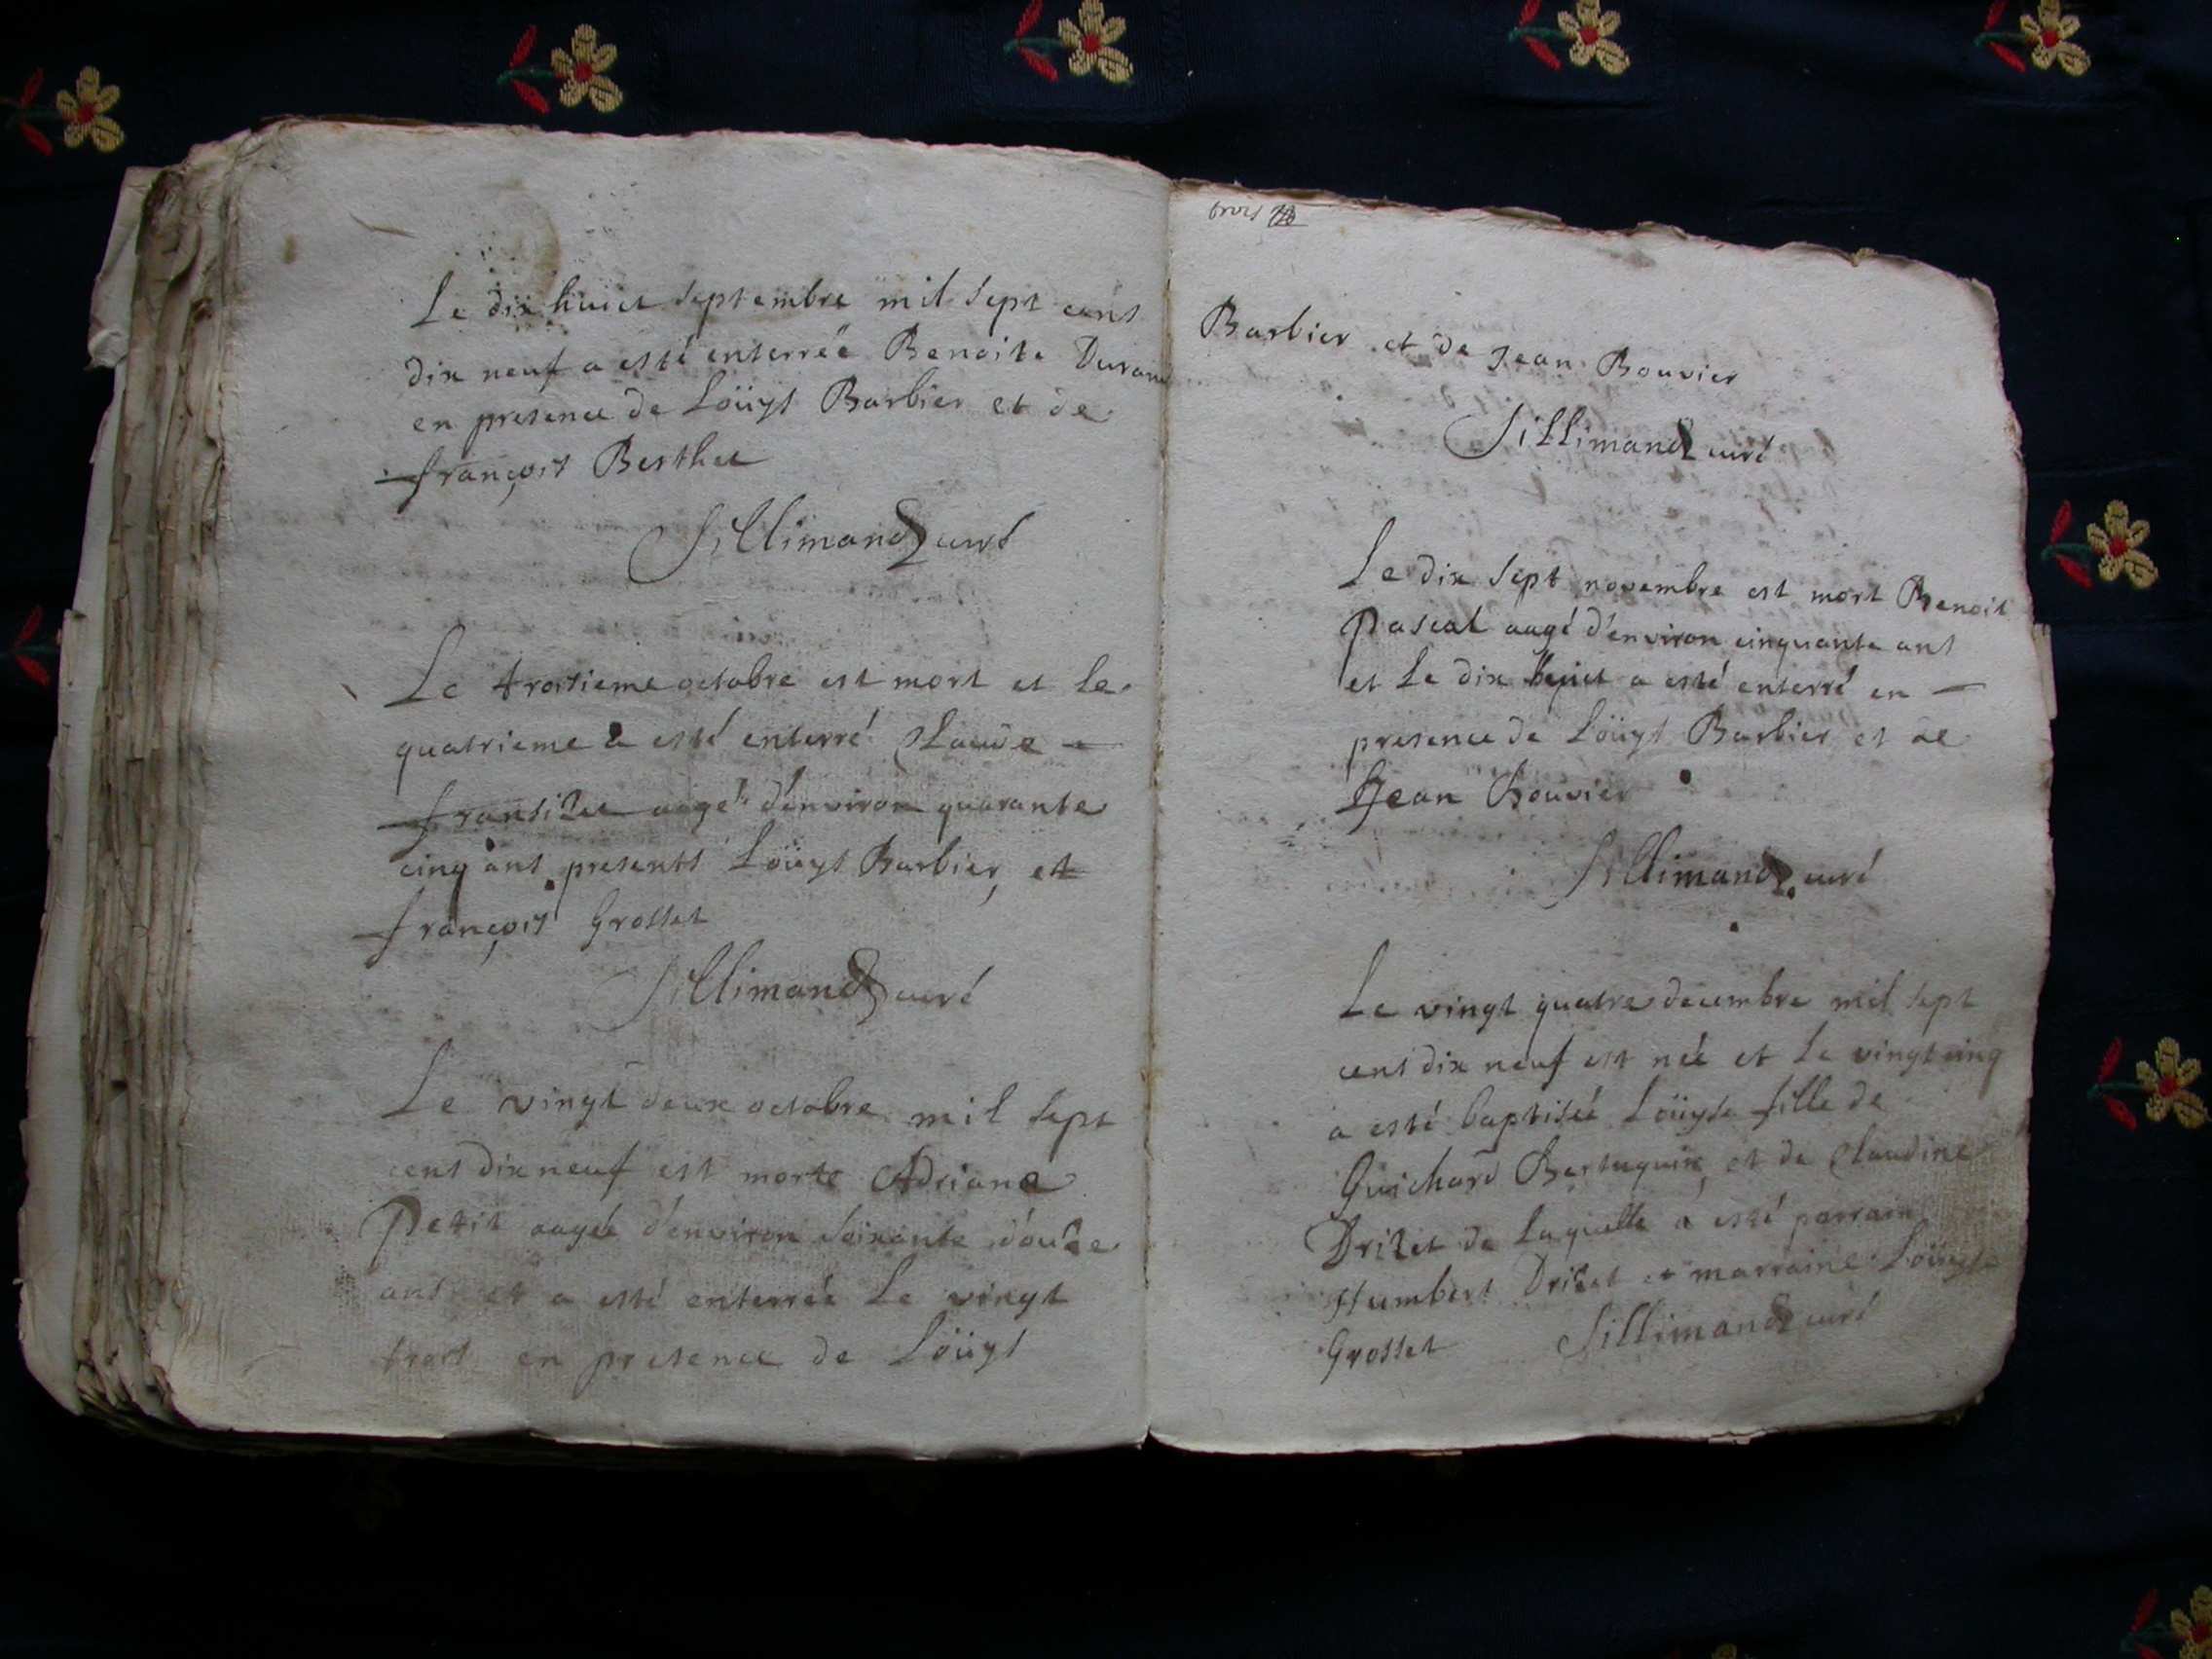 Le dix huict septembre mil sept cens
dix neuf a esté enterrée Benoite Durand
en presence de Loüys Barbier et de
françois Berthet
Sillimand curé
Le troisieme octobre est mort et le
quatrieme a esté enterré Claude
fransizet aagé d'environ quarante
cinq ans presents Loüys Barbier et
françois Grosset
Sillimand curé
Le vingt deux octobre mil sept
cens dix neuf est morte Adriane
Petit aagée d'environ soixante douze
ans et a esté enterrée Le vingt
trois en presence de Loüys
trois
Barbier et de Jean Bouvier
Sillimand curé
Le dix sept novembre est mort Benoit
Pascal aagé d'environ cinquante ans
et Le dix huict a esté enterré en
presence de Loüys Barbier et de
Jean Bouvier
Sillimand curé
Le vingt quatre decembre mil sept
cens dix neuf est née et Le vingt cinq
a esté baptisée Loüyse fille de
Guichard et de Claudine
Drizet de Laquelle a esté parrain
Humbert Drizet et marraine Loüyse
Grosset Sillimand curé